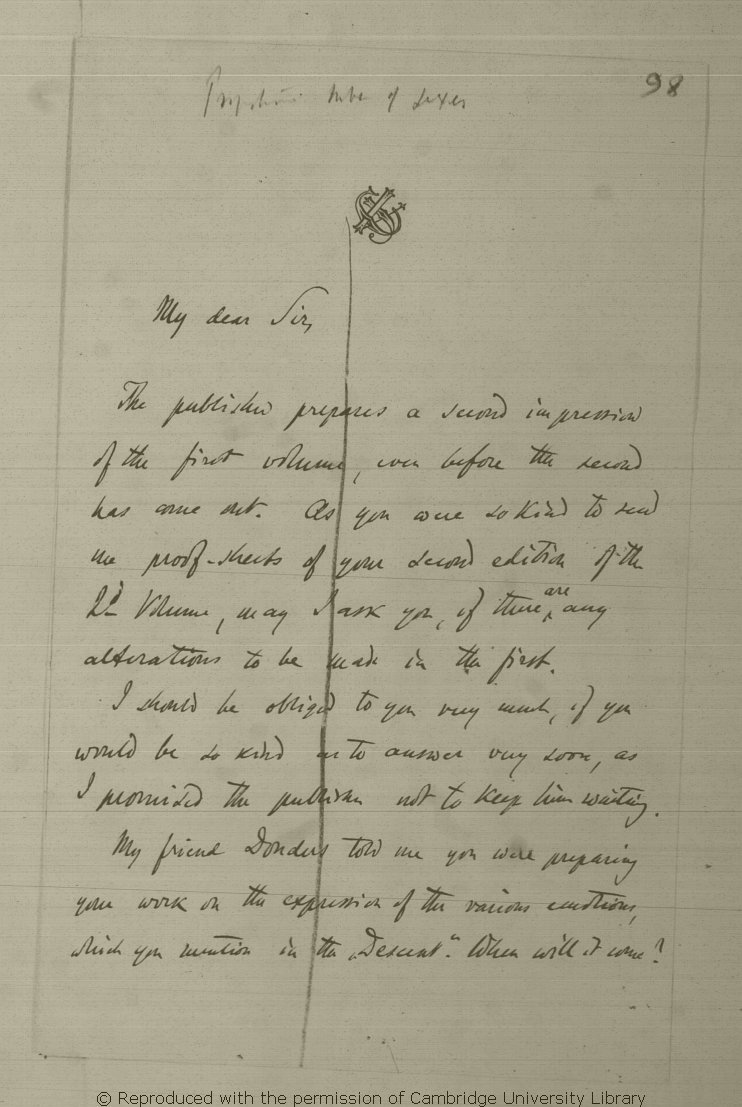 of Sexes
98
My dear Sir,
The publisher prepares a second impression
of the first volume, even before the second
has come out. As you were so kind to send
me proof-sheets of your second edition of the
2d Volume, may I ask you, if there are any
alterations to be made in the first.
I should be obliged to you very much, if you
would be so kind as to answer very soon, as
I promised the publisher not to keep him waiting.
My friend Donders told me you were preparing
your work on the expression of the various emotions,
which you mention in the „Descent“. When will it come?
© Reproduced with the permission of Cambridge University Library